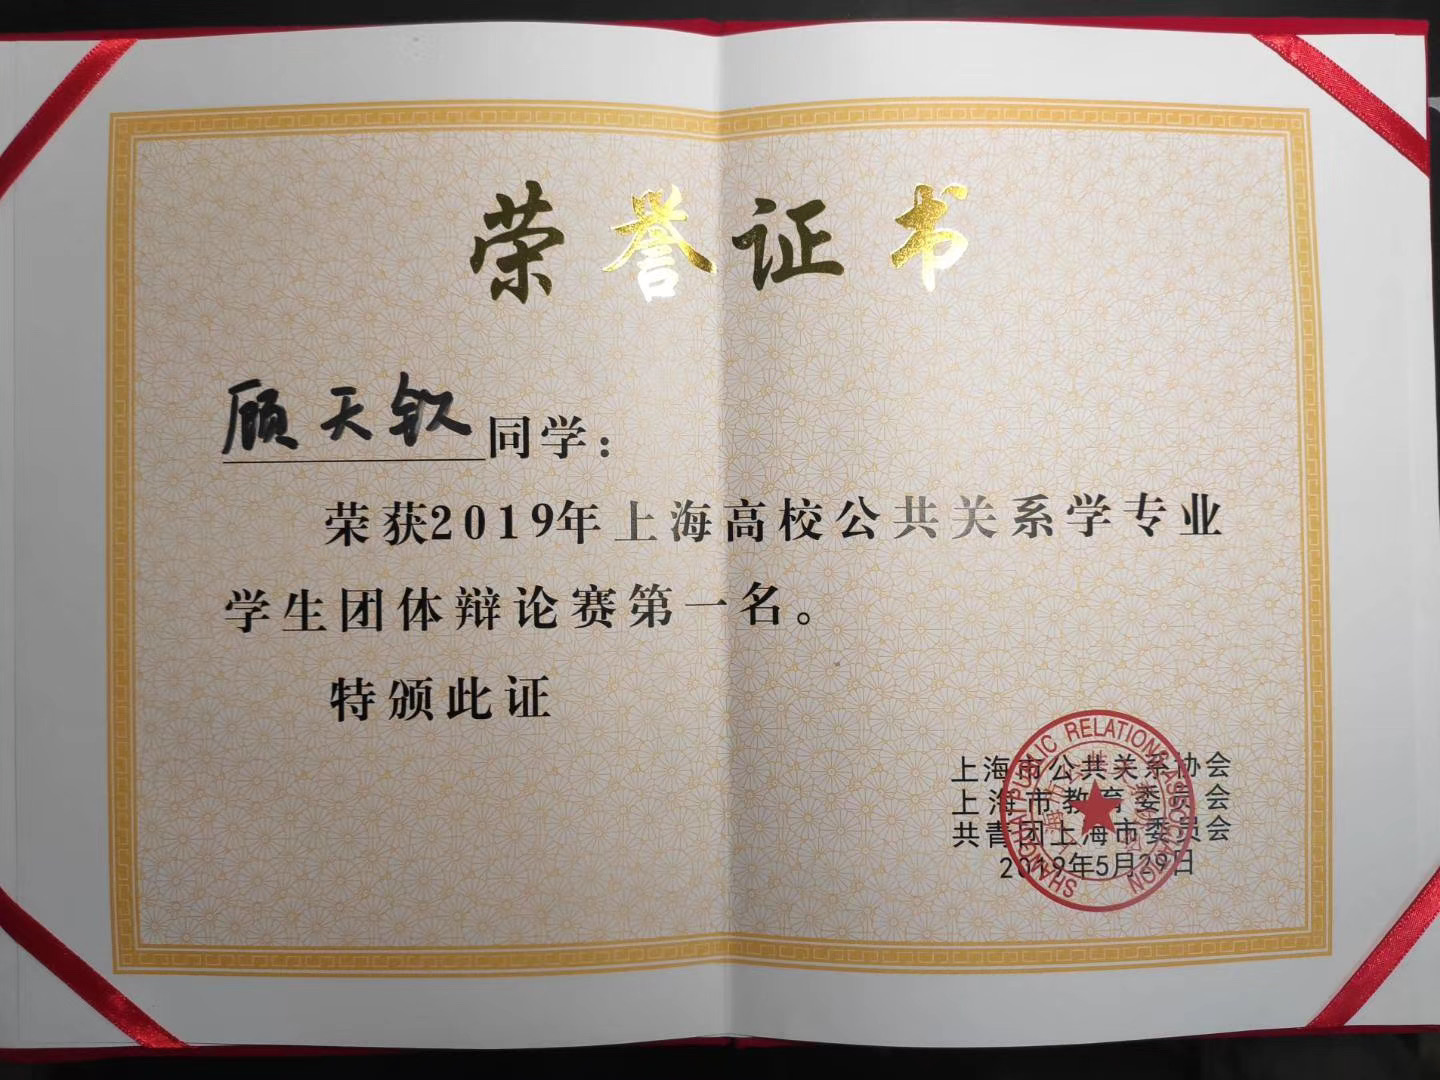 荣誉证书
顾天钦同学：
荣获2019年上海高校公共关系学专业
学生团体辩论赛第一名。
特颁此证
上海市公共关系协会
上海市教育委员会
共青团上海市委员会
2019年5月29日
SHANGHAI PUBLIC RELATIONS ASSOCIATION